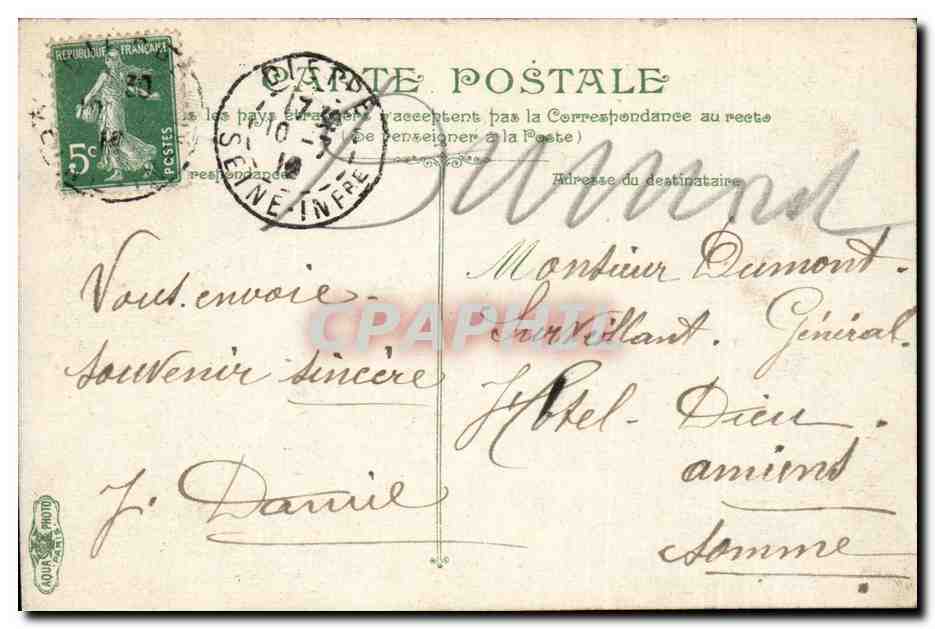 RÉPUBLIQUE FRANÇAISE
5c
POSTES
DIEPPE
17
10 - 7
10
SEINE-INFRE
CARTE POSTALE
les pays étrangers n'acceptent pas la Correspondance au recto
(Se renseigner à la Poste)
respondance
Adresse du destinataire
Dumont
Vous envoie
souvenir sincère
J. Daniel
Monsieur Dumont.
Surveillant. Général.
Hotel-Dieu.
amiens
Somme
CPAPHIL
AQUA PHOTO
PARIS